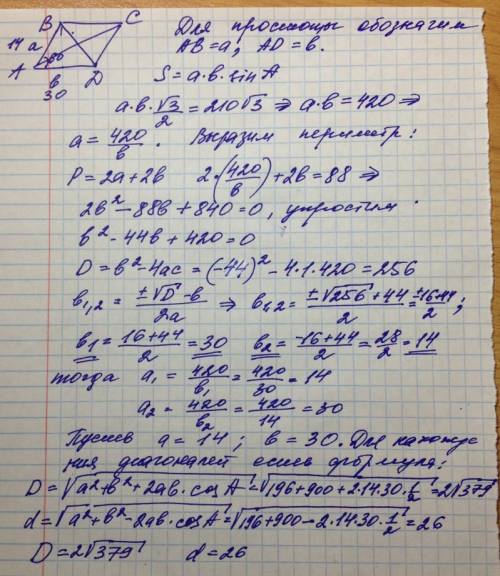 B C
14 a
A 60
D
в
30
Для простоты обозначим
AB=a; AD=в.
S=a·в·sin A
a·в·√3/2=210√3 ⇒ a·в=420 ⇒
a=420/в. Выразим периметр:
P=2a+2в 2·(420/в)+2в=88 ⇒
2в²-88в+840=0, упростим
в²-44в+420=0
D=в²-4ac=(-44)²-4·1·420=256
в1,2=±√D-в/2a ⇒ в1,2=±√256+44/2=±16+44/2;
в1=16+44/2=30 в2=-16+44/2=28/2=14
тогда a1=420/в1=420/30=14
a2=420/в2=420/14=30
Пусть a=14; в=30. Для нахожде
ния диагоналей есть формула:
D=√a²+в²+2aв·cos A=√196+900+2·14·30·1/2=2√379
d=√a²+в²-2aв·cos A=√196+900-2·14·30·1/2=26
D=2√379 d=26